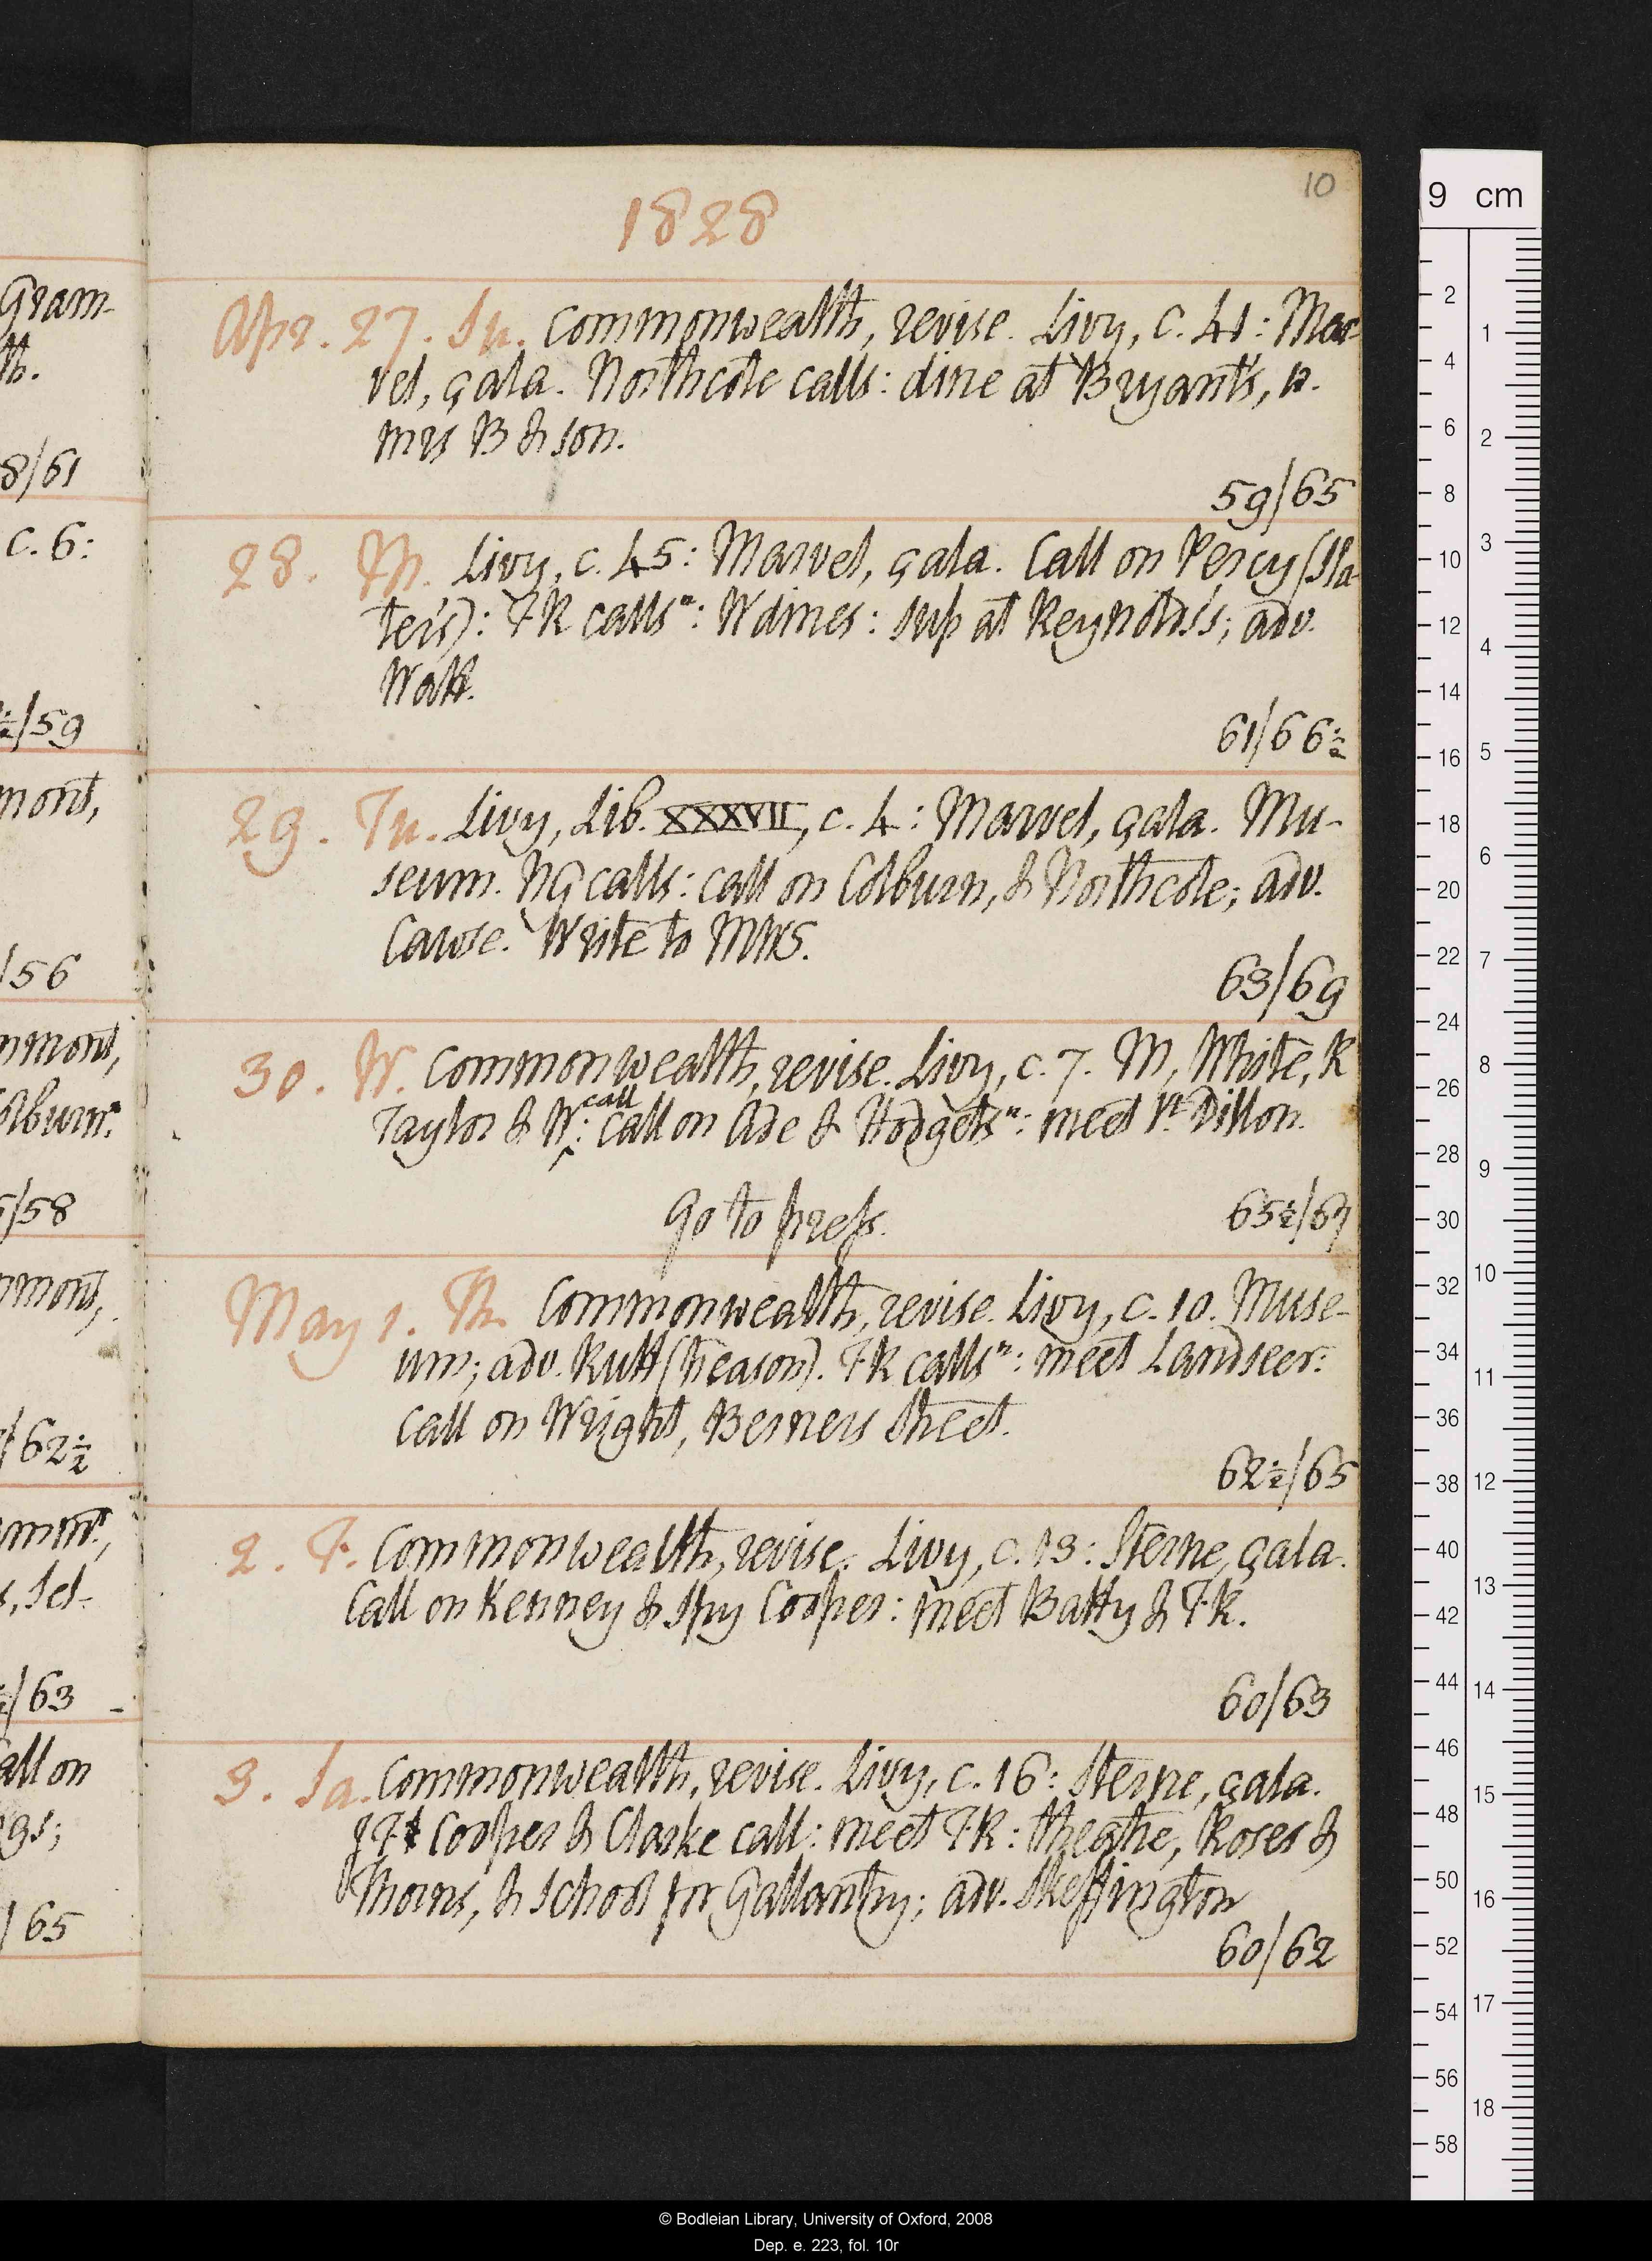 10
1828
Apr. 27. Su. Commonwealth, revise. Livy, c. 41: Mar-
vel, çala. Northcote calls: dine at Bryant's, w.
Mrs B & son.
59/65
28. M. Livy, c. 45: Marvel, çala. Call on Percy (Sla-
ter's): FK callsⁿ: W dines: sup at Reynolds's; adv.
Watt.
61/66½
29. Tu. Livy, Lib. XXXVII, c. 4: Marvel, çala. Mu-
seum. NG calls: call on Colburn, & Northcote; adv.
Cawse. Write to MWS.
63/69
30. W. Commonwealth, revise. Livy, c. 7. M, White, R
Taylor & W call: call on Ade & Hodgetsⁿ: meet Vt Dillon.
Go to press.
65½/67
May 1. Th. Commonwealth, revise. Livy, c. 10. Muse-
um; adv. Rutt (treason). FK callsⁿ: meet Landseer:
call on Wright, Berners Street.
62½/65
2. F. Commonwealth, revise. Livy, c. 13: Sterne, çala.
Call on Kenney & Spy Cooper: meet Batty & FK.
60/63
3. Sa. Commonwealth, revise. Livy, c. 16: Sterne, çala.
JF Cooper & Clarke call: meet FK: theatre, Roses &
Thorns, & School for Gallantry; adv. Skeffington
60/62
Gram-
th.
8/61
c. 6:
½/59
mont,
/56
mmont,
olburnⁿ.
/58
mmont,
/62½
mmt,
s, Sel-
½/63
Call on
gs;
/65
9 cm
2
4
6
8
10
12
14
16
18
20
22
24
26
28
30
32
34
36
38
40
42
44
46
48
50
52
54
56
58
1
2
3
4
5
6
7
8
9
10
11
12
13
14
15
16
17
18
© Bodleian Library, University of Oxford, 2008
Dep. e. 223, fol. 10r